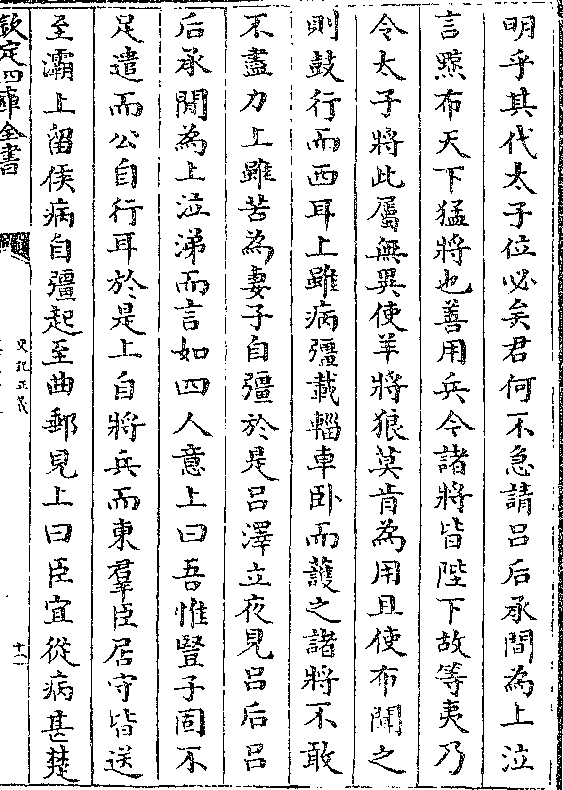 明乎其代太子位必矣君何不急請吕后承間為上泣
言黥布天下猛將也善用兵令諸將皆陛下故等夷乃
令太子將此屬無異使羊將狼莫肯為用且使布聞之
則鼓行而西耳上雖病彊載輜車卧而護之諸將不敢
不盡力上雖苦為妻子自彊於是吕澤立夜見吕后吕
后承間為上泣涕而言如四人意上曰吾惟豎子固不
足遣而公自行耳於是上自將兵而東羣臣居守皆送
至灞上留侯病自彊起至曲郵見上曰臣宜從病甚楚
欽定四庫全書
史記正義
十一